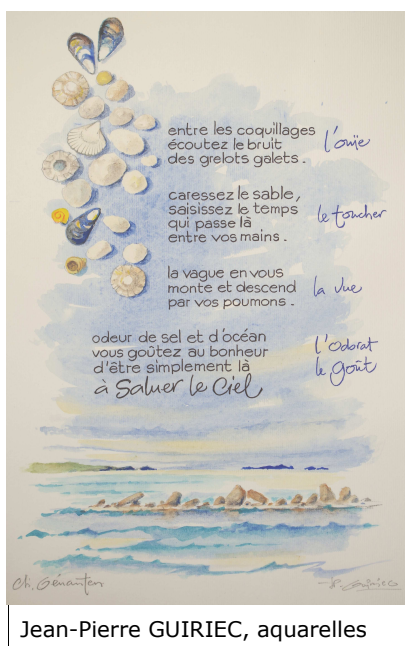 entre les coquillages
écoutez le bruit
des grelots galets.
l'ouïe
caressez le sable,
saisissez le temps
qui passe là
entre vos mains.
le toucher
la vague en vous
monte et descend
par vos poumons.
la vue
odeur de sel et d'océan
vous goûtez au bonheur
d'être simplement là
à Saluer le Ciel
l'odorat
le goût
Ch. Génanten
JP. Guiriec
Jean-Pierre GUIRIEC, aquarelles